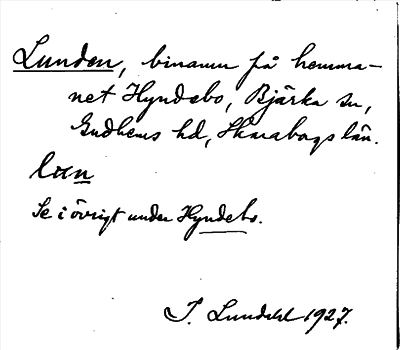 Lunden, binamn på hemma-
net Hyndebo, Bjärka sn,
Gudhems hd, Skaraborgs län.
Se i övrigt under Hyndebo.
I. Lundahl 1927.